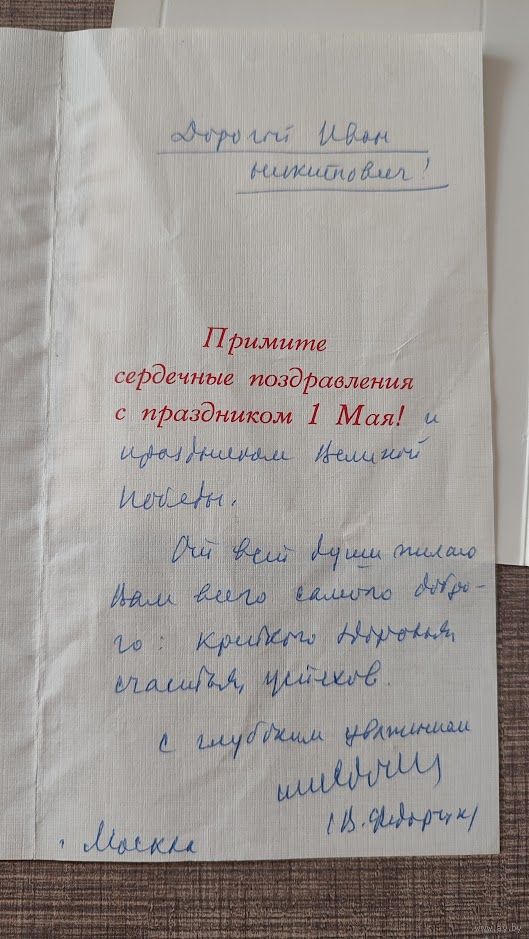 Дорогой Иван
Никитович!
Примите
сердечные поздравления
с праздником 1 Мая! и
праздником Великой
Победы.
От всей души желаю
Вам всего самого добро-
го: крепкого здоровья,
счастья, успехов.
С глубоким уважением
(В. Федорчук)
г. Москва
www.ay.by